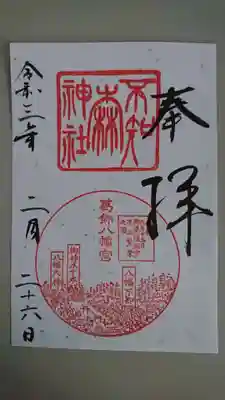 奉拝
不知
森
神社
葛飾八幡宮
八幡不知森
御神木千本
八幡大神
令和三年 二月 二十六日